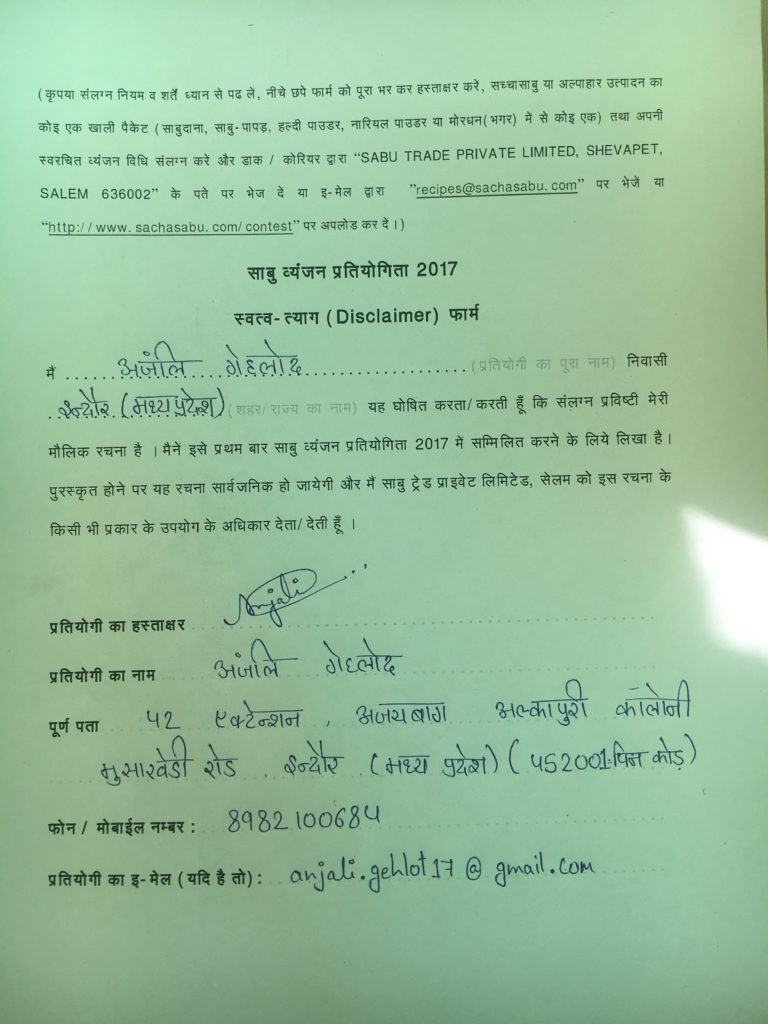 (कृपया संलग्न नियम व शर्तें ध्यान से पढ लें, नीचे छपे फार्म को पूरा भर कर हस्ताक्षर करें, सच्चासाबु या अल्पाहार उत्पादन का
कोइ एक खाली पैकेट (साबुदाना, साबु-पापड़, हल्दी पाउडर, नारियल पाउडर या मोरधन(भगर) में से कोइ एक) तथा अपनी
स्वरचित व्यंजन विधि संलग्न करें और डाक / कोरियर द्वारा "SABU TRADE PRIVATE LIMITED, SHEVAPET,
SALEM 636002" के पते पर भेज दें या इ-मेल द्वारा "recipes@sachasabu.com" पर भेजें या
"http://www.sachasabu.com/contest" पर अपलोड कर दें।)
साबु व्यंजन प्रतियोगिता 2017
स्वत्व-त्याग (Disclaimer) फार्म
मैं ......अंजलि गेहलोद.................... (प्रतियोगी का पूरा नाम) निवासी
इन्दौर (मध्य प्रदेश) (शहर/राज्य का नाम) यह घोषित करता/करती हूँ कि संलग्न प्रविष्टी मेरी
मौलिक रचना है । मैनें इसे प्रथम बार साबु व्यंजन प्रतियोगिता 2017 में सम्मिलित करने के लिये लिखा है।
पुरस्कृत होने पर यह रचना सार्वजनिक हो जायेगी और मैं साबु ट्रेड प्राइवेट लिमिटेड, सेलम को इस रचना के
किसी भी प्रकार के उपयोग के अधिकार देता/देती हूँ ।
प्रतियोगी का हस्ताक्षर Anjali
प्रतियोगी का नाम अंजलि गेहलोद
पूर्ण पता 42 एक्टेन्शन , अजयबाग अल्कापुरी कॉलोनी
मुसाखेडी रोड , इन्दौर (मध्य प्रदेश) (452001:पिन कोड़)
फोन / मोबाईल नम्बर : 8982100684
प्रतियोगी का इ-मेल (यदि है तो): anjali.gehlot17@gmail.com